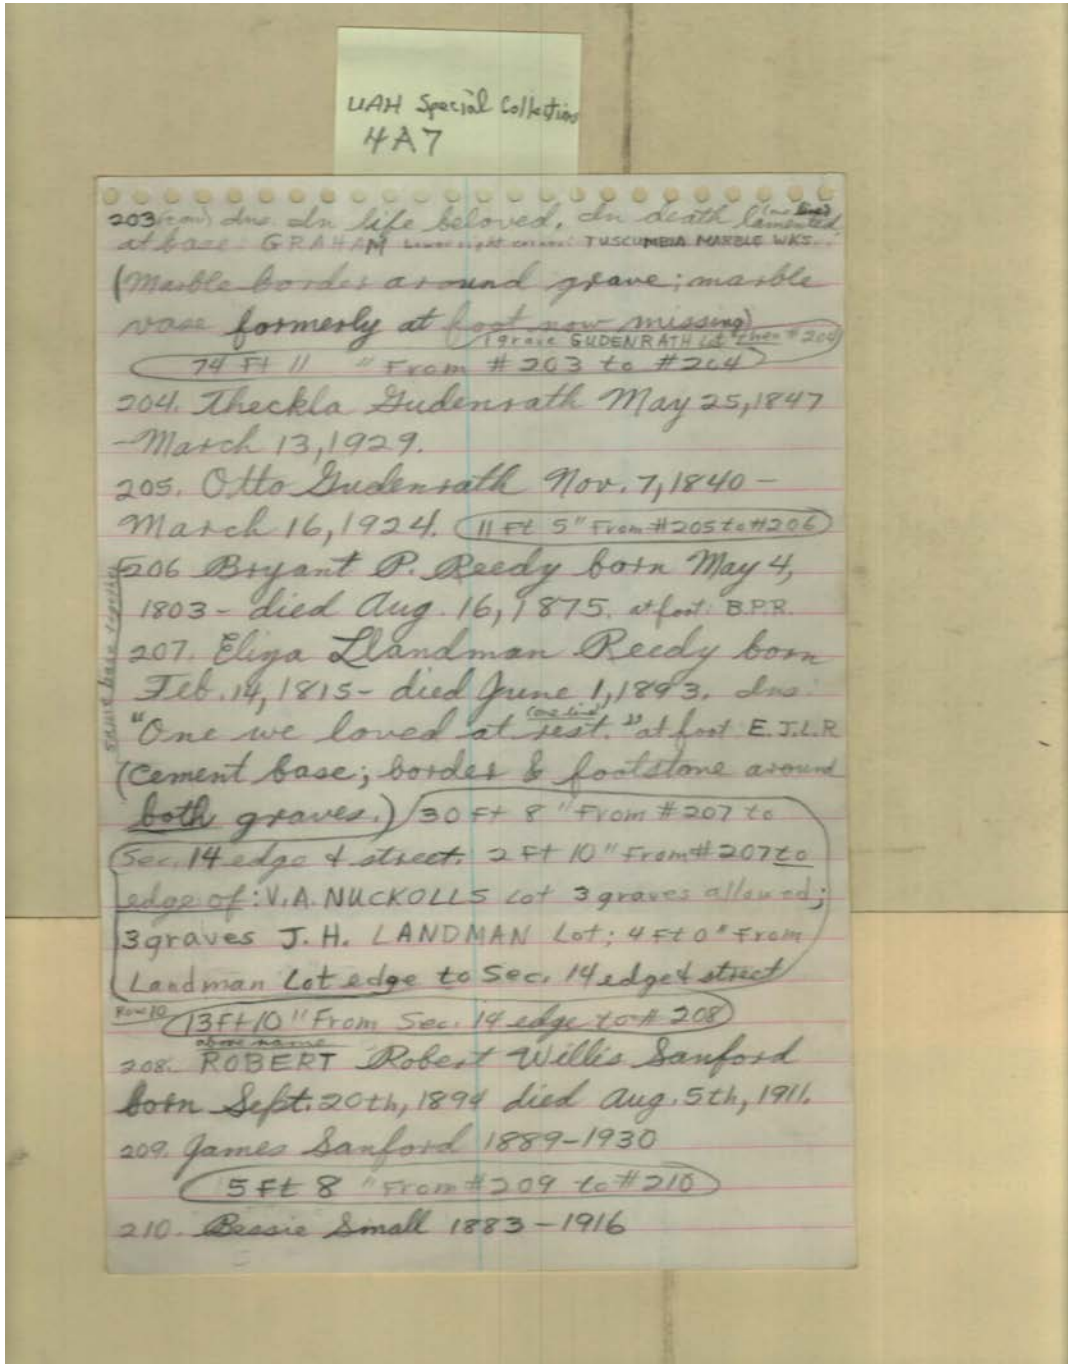 UAH Special Collections
4A7
203 (con) Ins. In life beloved, In death lamented (one line)
at base: GRAHAM Lower right corner: TUSCUMBIA MARBLE WKS.
(Marble border around grave; marble
vase formerly at foot now missing)
1 grave GUDENRATH Lot then #204
74 Ft 11 " From #203 to #204
204. Theckla Gudenrath May 25, 1847
- March 13, 1929.
205. Otto Gudenrath Nov. 7, 1840 -
March 16, 1924. 11 Ft 5" From #205 to #206
same base together
206 Bryant P. Reedy born May 4,
1803 - died Aug. 16, 1875. at foot: B.P.R.
207. Eliza Llandman Reedy born
Feb. 14, 1815 - died June 1, 1893. Ins:
(one line)
"One we loved at rest." at foot E.J.L.R
(Cement base; border & footstone around
both graves.) 30 Ft 8 " From #207 to
Sec. 14 edge & street. 2 Ft 10" From #207 to
edge of: V.A. NUCKOLLS Lot 3 graves allowed;
3 graves J. H. LANDMAN Lot; 4 Ft 0" From
Landman Lot edge to Sec. 14 edge & street
Row 10
13 Ft 10 " From Sec. 14 edge to # 208
above name
208. ROBERT Robert Willis Sanford
born Sept. 20th, 1894 died Aug. 5th, 1911.
209. James Sanford 1889-1930
5 Ft 8 " From #209 to #210
210. Bessie Small 1883-1916